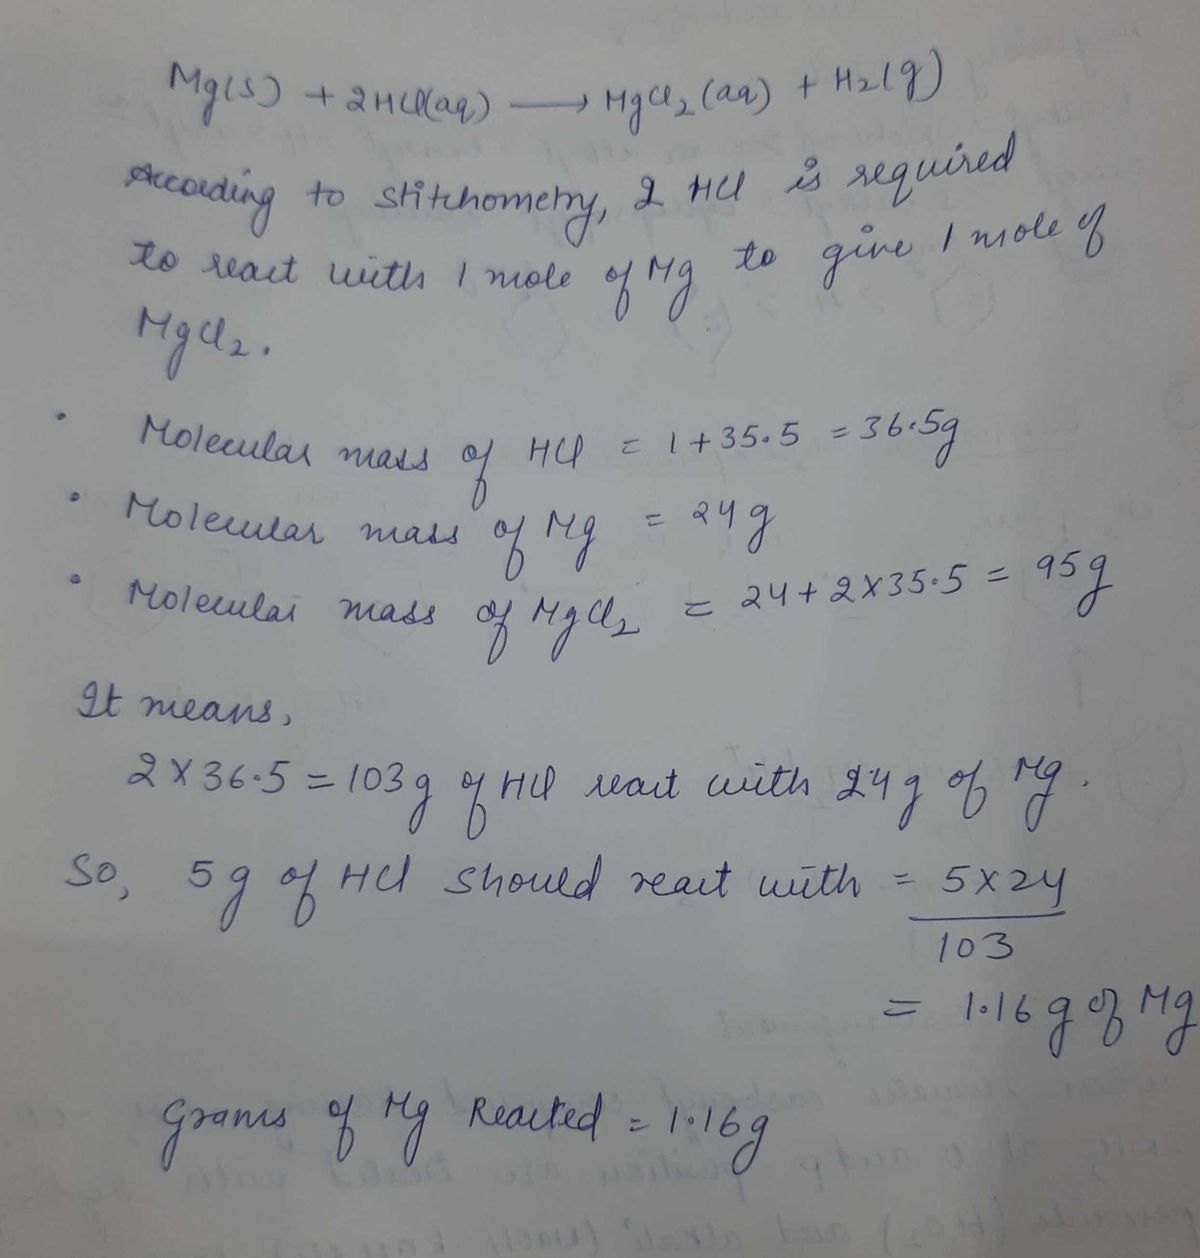 Mg(s) + 2HCl(aq) ⟶ MgCl₂(aq) + H₂(g)
According to stitchometry, 2 HCl is required
to react with 1 mole of Mg to give 1 mole of
MgCl₂.
• Molecular mass of HCl = 1+35.5 = 36.5g
• Molecular mass of Mg = 24g
• Molecular mass of MgCl₂ = 24+2×35.5 = 95g
It means,
2×36.5 = 103g of HCl react with 24g of Mg.
So, 5g of HCl should react with = 5×24
103
= 1.16g of Mg
Grams of Mg Reacted = 1.16g